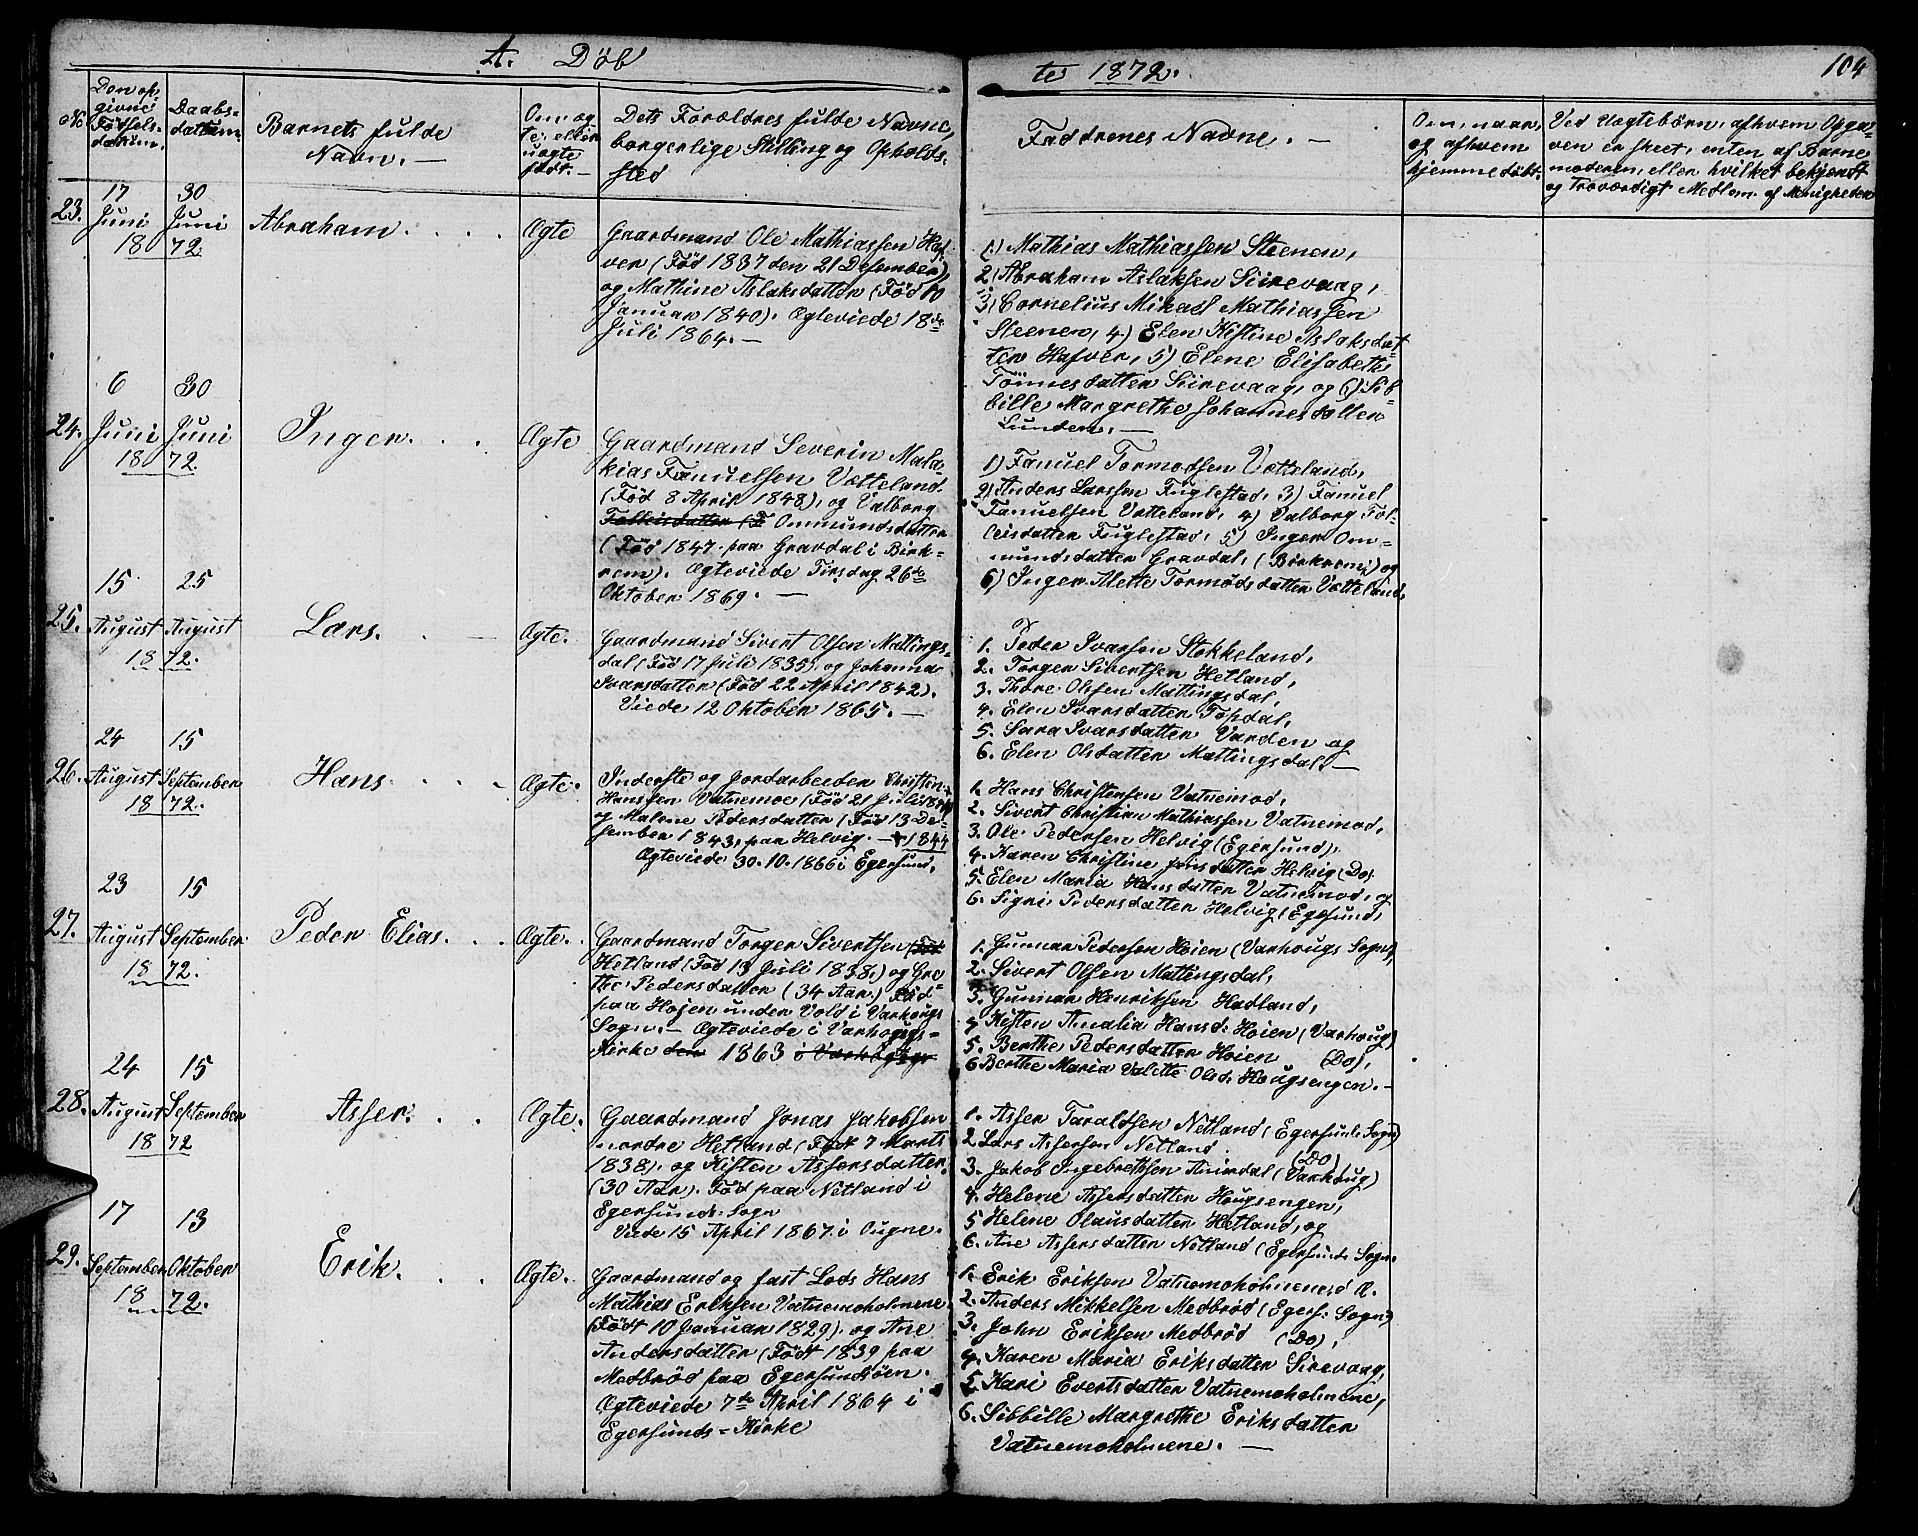 A. Döb
te 1872.
104
No
Den op-
givne
Födsels-
datum.
Daabs-
dattum
Barnets fulde
Navn. —
Om æg
te, eller
uægte
födt. —
Dets Forældres fulde Navne,
borgerlige Stilling og Opholds-
sted
Faddrenes Navne. —
Om, naar,
og afhvem
hjemmedöbt.
Ved Uægtebörn, afhvem Opga-
ven er skeet, enten af Barne
moderen, eller hvilket bekjendt
og Troværdigt Medlem af Menigheden
23.
17
Juni
18
30
Juni
72.
Abraham . . . .
Ægte
Gaardmand Ole Mathiassen Haf-
ver (Föd 1837 den 21 Desember),
og Mathine Aslaksdatter (Föd 10
Januar 1840). Ægteviede 18de
Juli 1864. —
1) Mathias Mathiassen Steenen,
2) Abraham Aslaksen Siirevaag,
3) Cornelius Mikael Mathiassen
Steenen, 4) Elen Kistine Aslaksdat-
ter Hafver, 5) Elene Elisabeth
Tönnesdatter Siirevaag, og 6) Sib-
bille Margrethe Johannesdatter
Lunden. —
24.
6
Juni
18
30
Juni
72.
Inger. . .
Ægte
Gaardmand Severin Mala-
kias Fanuelsen Vætteland.
(Föd 8 April 1848), og Valborg
Folleisdatter (F Ommundsdatter
(Föd 1847 paa Gravdal i Birk-
rem). Ægteviede Tirsdag 26de
Oktober 1869. —
1) Fanuel Tormodsen Vætteland,
2) Anders Larssen Fuglestad, 3) Fanuel
Fanuelsen Vætteland, 4) Valborg Fol-
leisdatter Fuglestad, 5) Inger Om-
mundsdatter Gravdal, (Birkrem) og
6) Inger Alette Tormodsdatter Vætteland,
25.
15
August
18
25
August
72.
Lars. . —
Ægte.
Gaardmand Sivert Olsen Mattings-
dal (Föd 17 Juli 1835), og Johanna
Ivarsdatter (Föd 22 April 1842).
Viede 12 Oktober 1865. —
1. Peder Ivarsen Stokkeland,
2. Torger Sivertsen Hetland,
3. Thore Olsen Mattingsdal,
4. Elen Ivarsdatter Topdal,
5. Sara Ivarsdatter Varden og
6. Elen Olsdatter Mattingsdal. —
26.
24
August
18
15
September
72.
Hans . . . -
Ægte.
Inderste og Jordarbeider Christen
Hanssen Vatnemoe (Föd 21 Juli
og Malene Pedersdatter (Föd 13 De-
sember 1843, paa Helvig. — 1844
Ægteviede 30.10.1866 i Egersund.
1. Hans Christensen Vatnemod,
2. Sivert Christian Mathiassen Vatnemod,
3. Ole Pedersen Helvig (Egersund),
4. Karen Christine Jensdatter Helvig (Do).
5. Elen Maria Hansdatter Vatnemod, og
6. Signi Pedersdatter Helvig (Egesund,
27.
23
August
18
15
September
72.
Peder Elias. . .
Ægte.
Gaardmand Torger Sivertsen (Föd
Hetland (Föd 13 Juli 1838.) og Gre-
the Pedersdatter (34 Aar.) Föd
paa Hojen under Vold i Varhougs
Sogn. — Ægteviede i Varhougs-
Kirke den 1863
1. Gunnar Pedersen Höien (Varhougs Sogn),
2. Sivert Olsen Mattingsdal,
3. Gunnar Henriksen Hadland,
4 Kisten Amalia Hansd. Höien (Varhoug)
5. Berthe Pedersdatter Höien (Do),
6 Berthe Maria Valette Olsd. Hougsengen. —
28.
24
August
18
15
September
72
Asser. . .
Ægte.
Gaardmand Jonas Jakobsen
nordre Hetland (Födt 7 Marts
1838), og Kisten Assersdatter,
(30 Aar). Föd paa Netland i
Egersunds Sogn
Viede 15 April 1867. i Ougne.
1. Asser Taraldsen Netland (Egersunds Sogn)
2. Lars Assersen Netland (Do)
3. Jakob Ingebretsen Anisdal (Varhoug)
4. Helene Assersdatter Hougsengen,
5 Helene Olausdatter Hetland, og
6. Ane Assersdatter Netland (Egersunds Sogn.
29.
17
September
18
13
Oktober
72.
Erik. . .
Ægte.
Gaardmand og fast Lods Hans
Mathias Eriksen Vatnemoholmene
(Födt 10 Januar 1829), og Ane
Andersdatter (Födt 1839 paa
Medbröd paa Egersundsöen.
Ægteviede 7de April 1864 i
Egersunds=Kirke
1. Erik Eriksen Vatnemoholmene
2. Anders Mikkelsen Medbröd (Egers: Sogn)
3. John Eriksen Medbröd (Do),
4. Karen Maria Eriksdatter Sirevaag,
5. Kari Evertsdatter Vatnemoholmene,
6. Sibbille Margrethe Eriksdatter
Vatnemoholmene. —